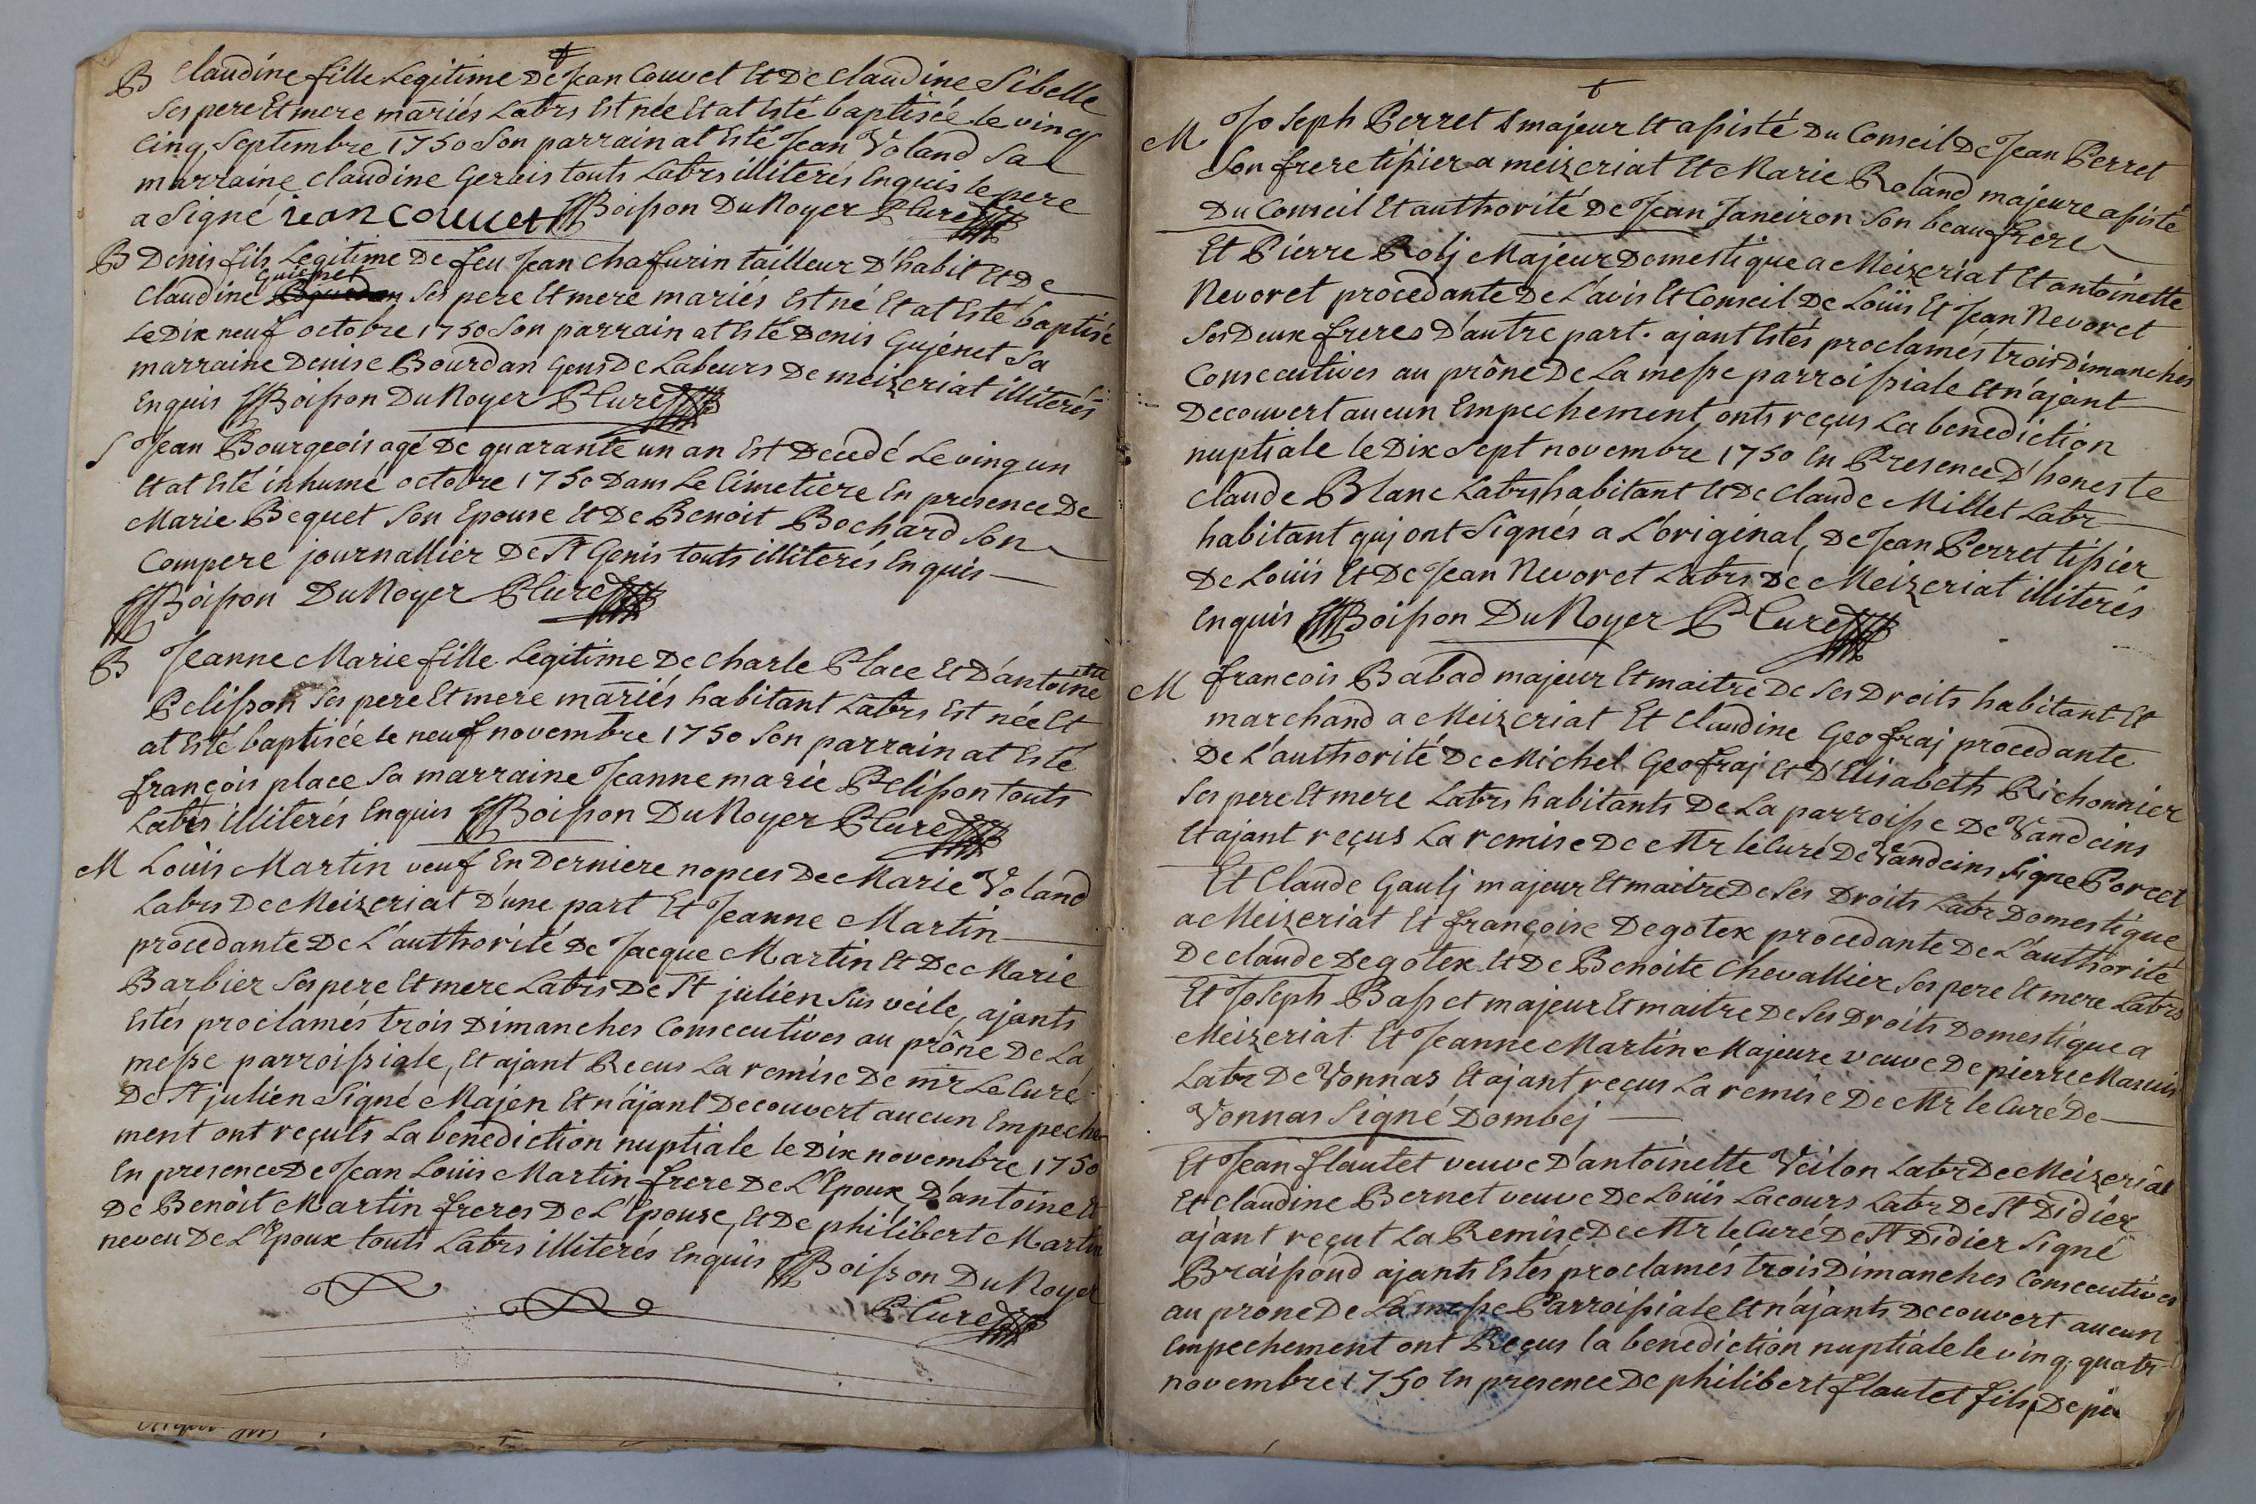 B Claudine fille Legitime De Jean Couvet Et De Claudine Sibelle
Ses pere Et mere mariés Labrs Est née Et at Esté baptisée le vingt
Cinq Septembre 1750 Son parrain at Esté Jean Voland Sa
marraine Claudine Gerais touts Labrs illiterés Enquis le pere
a Signé iean couuet Boisson Du Noyer P Curé
B Denis fils Legitime De feu Jean Chafurin tailleur D'habit Et De
Guigenet
Claudine Ses pere Et mere mariés Est né Et at Esté baptisé
Le Dix neuf octobre 1750 Son parrain at Esté Denis Gujénet Sa
marraine Denise Bourdan Gens De Labeurs De meizeriat illiterés
Enquis Boisson Du Noyer P Curé
S Jean Bourgeois agé De quarante un an Est Decedé Le ving un
Et at Esté inhumé octobre 1750 Dans Le Cimetière En presence De
Marie Bequet Son Epouse Et De Benoit Bochard Son
Compere journallier De St Genis touts illiterés Enquis
Boisson Du Noyer P Curé
B Jeanne Marie fille Legitime De Charle Place Et D'antoinette
Pelisson Ses pere Et mere mariés habitant Labrs Est née Et
at Esté baptisée le neuf novembre 1750 Son parrain at Esté
françois place Sa marraine Jeanne marie Pelisson touts
Labrs illiterés Enquis Boisson Du Noyer P Curé
M Louis Martin veuf En Derniere nopces De Marie Voland
Labrs De Meizeriat D'une part Et Jeanne Martin
procedante De L'authorité De Jacque Martin Et De Marie
Barbier Ses pere Et mere Labrs De St julien Sus veile, ajants
Estés proclamés trois Dimanches Consecutives au prône De La
messe parroissiale, Et ajant Recus La remise De mr Le Curé
De St julien Signé Majén Et n'ajant Decouvert aucun Empeche
ment ont reçuts La benediction nuptiale le Dix novembre 1750
En presence De Jean Louis Martin frere De L'Epoux, D'antoine Et
De Benoit Martin freres De L'Epouse, Et De philibert Martin
neveu De L'Epoux touts Labrs illiterés Enquis Boisson Du Noyer
P Curé
M. Joseph Perret majeur Et assisté Du Conseil De Jean Perret
Son frere tissier a meizeriat Et Marie Roland majeure assisté
Du Conseil Et authorité De Jean Janeiron Son beaufrere
Et Pierre Rolj Majeur Domestique a Meizeriat Et antoinette
Nevoret procedante De L'avis Et Conseil De Louis Et Jean Nevoret
Ses Deux freres D'autre part. ajant Estés proclamés trois Dimanches
Consecutives au prône De La messe parroissiale Et n'ajant
Decouvert aucun Empechement onts reçus La benediction
nuptiale le Dix Sept novembre 1750 En Presence D'honeste
Claude Blanc Labrs habitant Et De Claude Millet Labr
habitant quj ont Signés a L'original, De Jean Perret tissier
De Louis Et De Jean Nevoret Labrs De Meizeriat illiterés
Enquis Boisson Du Noyer P Curé
M francois Babad majeur Et maitre De Ses Droits habitant Et
marchand a Meizeriat Et Claudine Geofraj procedante
De L'authorité De Michel Geofraj Et D'Elisabeth Richonnier
Ses pere Et mere Labrs habitants De La parroisse De Vandeins
Et ajant reçus La remise De Mr le Curé De Vandeins Signe Porcet
Et Claude Gaulj majeur Et maitre De Ses Droits Labr Domestique
a Meizeriat Et françoise Degotex procedante De L'authorité
De claude Degotex Et De Benoite Chevallier Ses pere Et mere Labrs
Et Joseph Basset majeur Et maitre De Ses Droits Domestique a
Meizeriat Et Jeanne Martin Majeure veuve De pierre
Labr De Vonnas Et ajant reçus La remise De Mr le Curé De
Vonnas Signé Dombej
Et Jean flautet veuve D'antoinette Veilon Labr De Meizeriat
Et Claudine Bernet veuve De Louis Lacours Labr De St Didier
ajant reçut La Remise De Mr le Curé De St Didier Signé
Braissoud ajants Estés proclamés trois Dimanches Consecutives
au prone De La messe Parroissiale Et n'ajants Decouvert aucun
Empechement ont Reçus la benediction nuptiale le ving: quatr
novembre 1750 En presence De philibert flautet fils, De pie